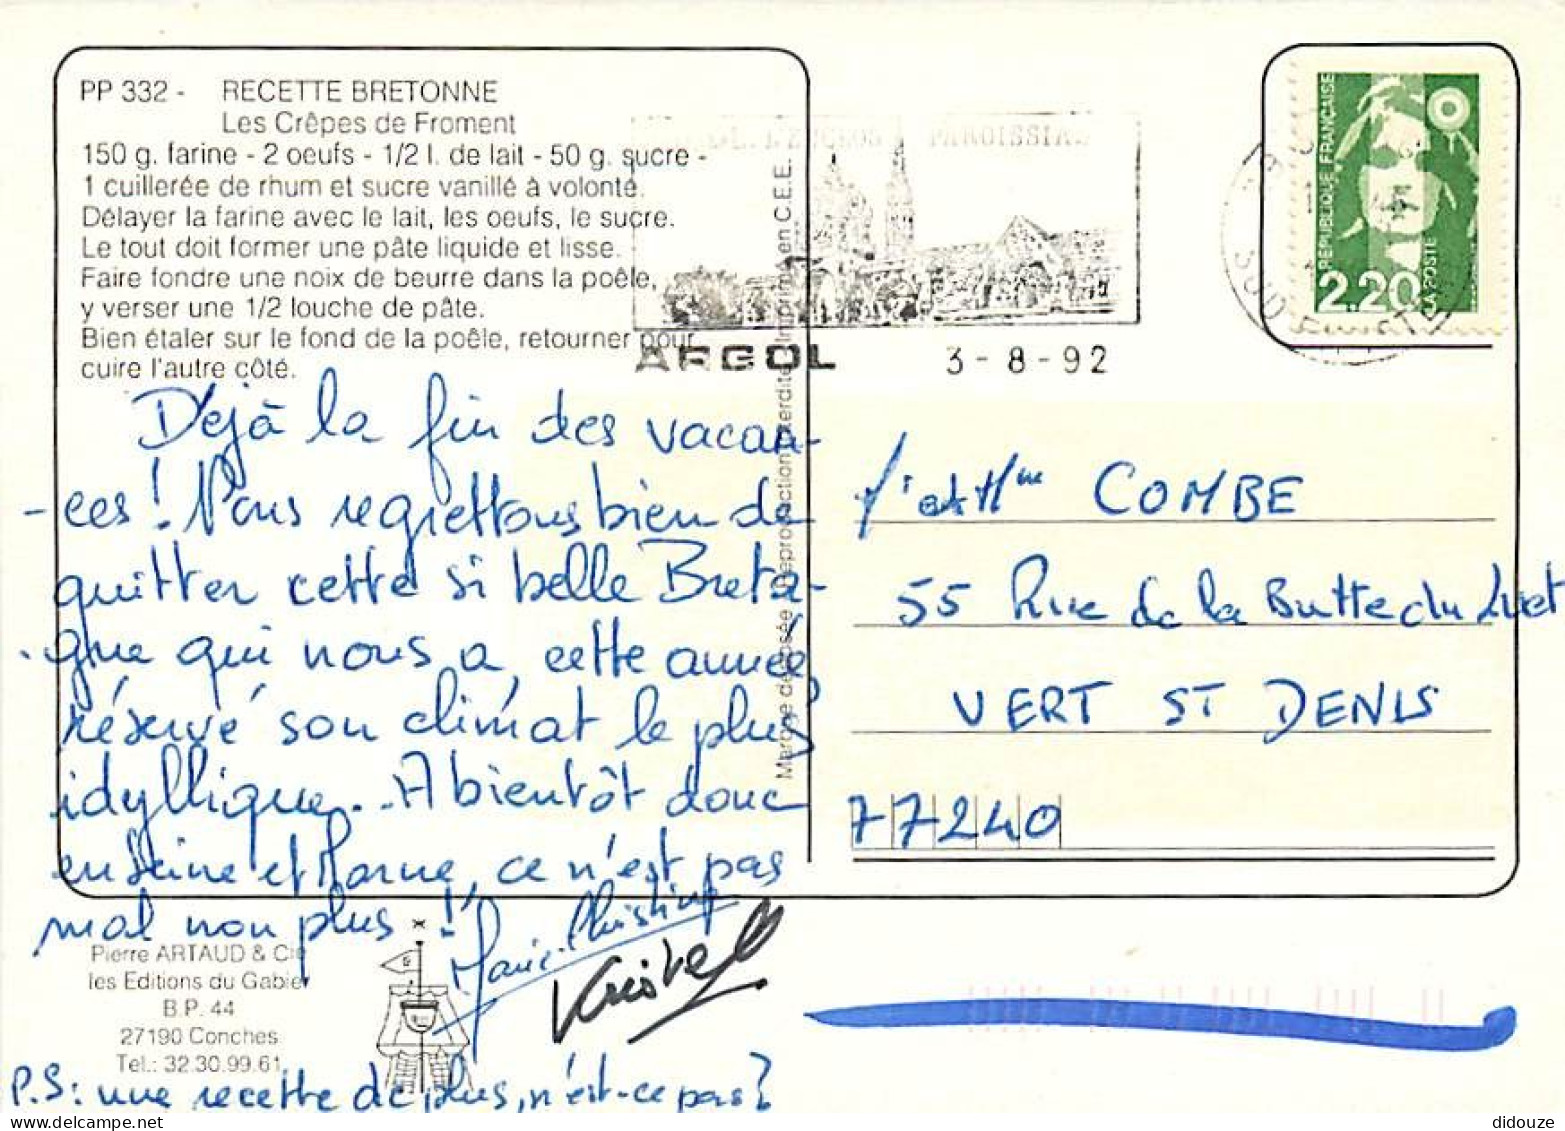 PP 332 - RECETTE BRETONNE
Les Crêpes de Froment
150 g. farine - 2 oeufs - 1/2 l. de lait - 50 g. sucre -
1 cuillerée de rhum et sucre vanillé à volonté.
Délayer la farine avec le lait, les oeufs, le sucre.
Le tout doit former une pâte liquide et lisse.
Faire fondre une noix de beurre dans la poêle,
y verser une 1/2 louche de pâte.
Bien étaler sur le fond de la poêle, retourner pour
cuire l'autre côté.
Déjà la fin des vacan-
-ces ! Nous regrettons bien de
quitter cette si belle Breta-
-gne qui nous a, cette année,
réservé son climat le plus
idyllique... A bientôt donc
en Seine et Marne, ce n'est pas
mal non plus !
Marie-Christine
Kristell
Pierre ARTAUD & Cie
les Editions du Gabier
B.P. 44
27190 Conches
Tel.: 32.30.99.61
P.S: une recette de plus, n'est-ce pas ?
Marque déposée Reproduction interdite Imprimé en C.E.E.
PAROISSIAL
ARGOL 3-8-92
RÉPUBLIQUE FRANÇAISE
2.20
LA POSTE
SUD FINISTE
et Mme COMBE
55 Rue de la Butte du Luet
VERT ST DENIS
77240
didouze